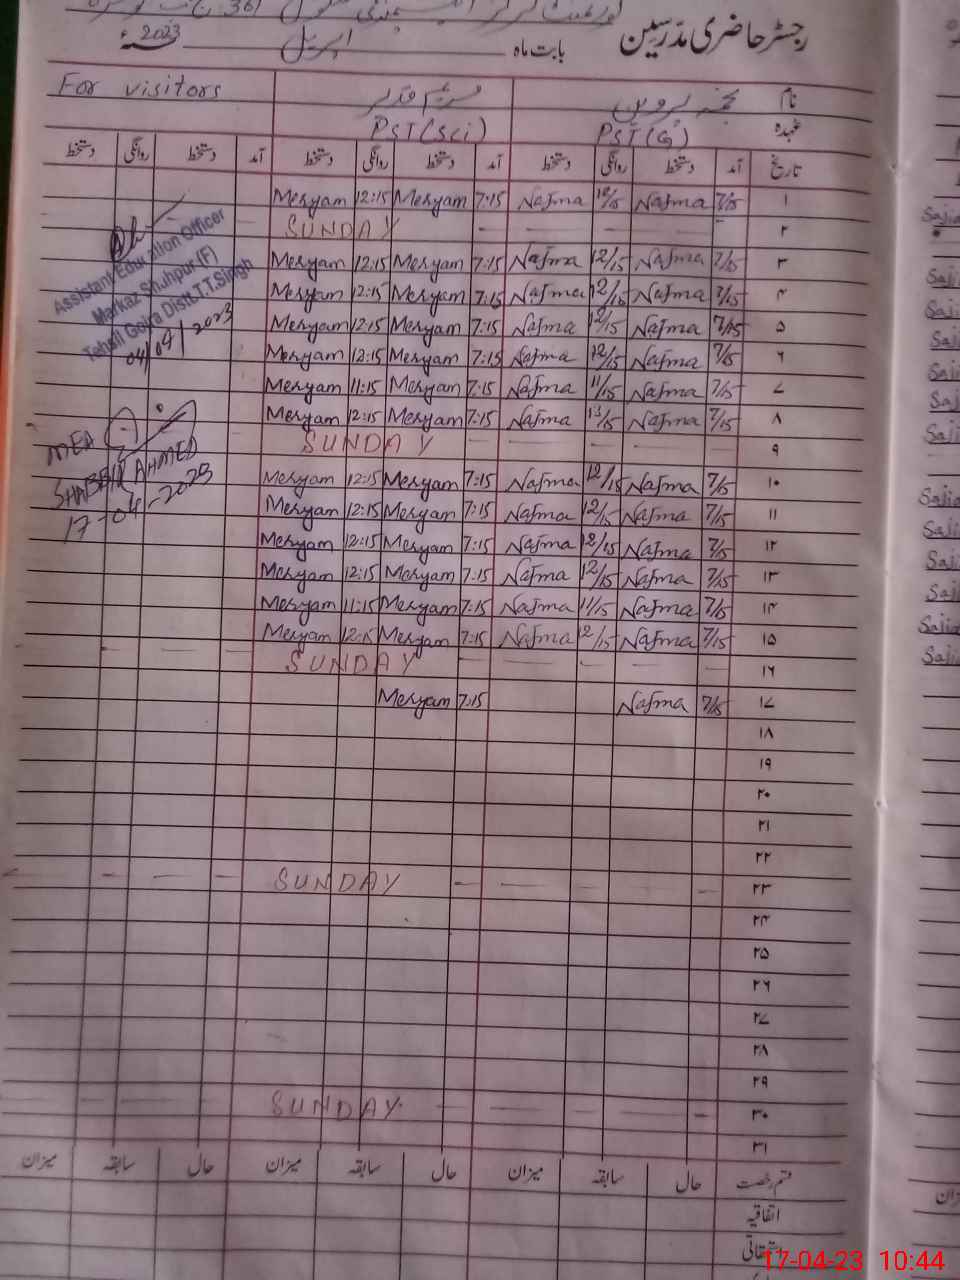 گورنمنٹ گرلز
رجسٹر حاضری مدرسین بابت ماہ اپریل 2023ء
نام نجمہ پروین مریم قدیر For visitors
عہدہ PST(G) PST(Sci)
تاریخ آمد دستخط روانگی دستخط آمد دستخط روانگی دستخط آمد دستخط روانگی دستخط
۱ 7/15 Najma 12/15 Najma 7:15 Meryam 12:15 Meryam
۲ SUNDAY
۳ 7/15 Najma 12/15 Najma 7:15 Meryam 12:15 Meryam
۴ 7/15 Najma 12/15 Najma 7:15 Meryam 12:15 Meryam
۵ 7/15 Najma 12/15 Najma 7:15 Meryam 12:15 Meryam
۶ 7/15 Najma 12/15 Najma 7:15 Meryam 12:15 Meryam
۷ 7/15 Najma 11/15 Najma 7:15 Meryam 11:15 Meryam
۸ 7/15 Najma Najma 7:15 Meryam 12:15 Meryam
۹ SUNDAY
۱۰ 7/15 Najma 12/15 Najma 7:15 Meryam 12:15 Meryam
۱۱ 7/15 Najma 12/15 Najma 7:15 Meryam 12:15 Meryam
۱۲ 7/15 Najma 12/15 Najma 7:15 Meryam 12:15 Meryam
۱۳ 7/15 Najma 12/15 Najma 7:15 Meryam 12:15 Meryam
۱۴ 7/15 Najma 11/15 Najma 7:15 Meryam 11:15 Meryam
۱۵ 7/15 Najma 12/15 Najma 7:15 Meryam 12:15 Meryam
۱۶ SUNDAY
۱۷ 7/15 Najma 7:15 Meryam
۱۸
۱۹
۲۰
۲۱
۲۲
۲۳ SUNDAY
۲۴
۲۵
۲۶
۲۷
۲۸
۲۹
۳۰ SUNDAY
۳۱
Assistant Education Officer
Markaz Shuhpur (F)
Tehsil Gojra Distt.T.T.Singh
04/04/2023
MEA
SHABBIR AHMED
17-04-2023
قسم رخصت حال سابقہ میزان حال سابقہ میزان حال سابقہ میزان
اتفاقیہ
استحقاقی
17-04-23 10:44